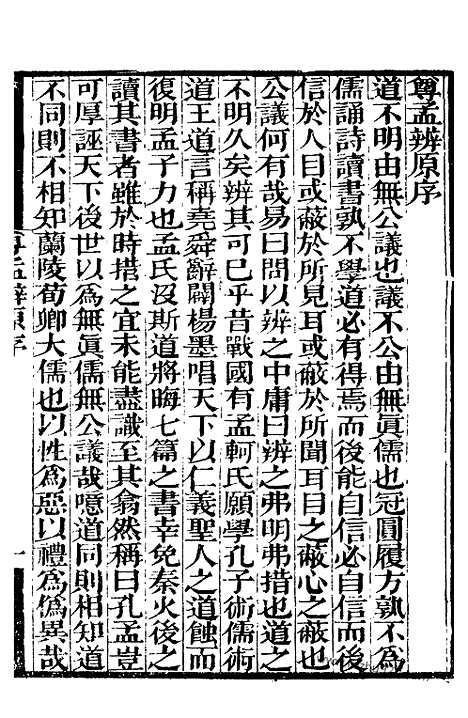 尊孟辨原序
道不明由無公議也議不公由無眞儒也冠圓履方孰不爲
儒誦詩讀書孰不學道必有得焉而後能自信必自信而後
信於人目或蔽於所見耳或蔽於所聞耳目之蔽心之蔽也
公議何有哉易曰問以辨之中庸曰辨之弗明弗措也道之
不明久矣辨其可已乎昔戰國有孟軻氏願學孔子術儒術
道王道言稱堯舜辭闢楊墨唱天下以仁義聖人之道蝕而
復明孟子力也孟氏沒斯道將晦七篇之書幸免秦火後之
讀其書者雖於時措之宜未能盡識至其翕然稱曰孔孟豈
可厚誣天下後世以爲無眞儒無公議哉噫道同則相知道
不同則不相知蘭陵荀卿大儒也以性爲惡以禮爲僞異哉
尊孟辨原序
一